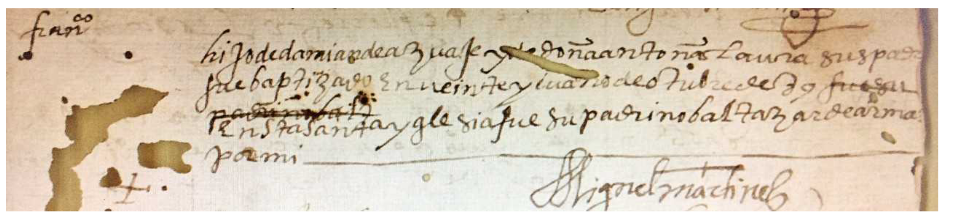 franco
hijo de damian de azuaje y de doña antonia laura sus padres
fue baptizado En veinte y quatro de otubre de 89 fue su
padrino balt
En sta santa yglesia fue su padrino baltazar de arma
por mi
Miguel martinez